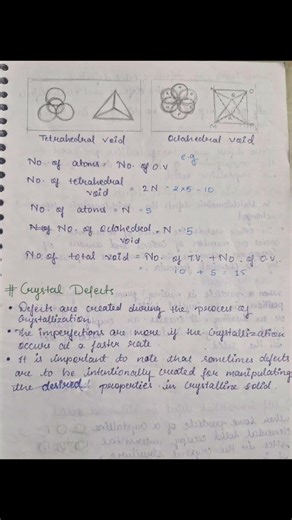 Tetrahedral void Octahedral void
No. of atoms = No. of O.V e.g
No. of tetrahedral
void = 2N = 2×5 = 10
No. of atoms = N = 5
No. of Octahedral = N = 5
void
No. of total void = No. of T.V. + No. of O.V.
10 + 5 = 15
# Crystal Defects
• Defects are created during the process of
crystallization
• The imperfections are more if the crystallization
occurs at a faster rate
• It is important to note that sometimes defects
are to be intentionally created for manipulating
the desired properties in crystalline solid.